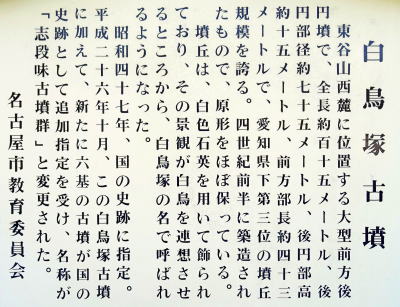 白鳥塚古墳
東谷山西麓に位置する大型前方後
円墳で、全長約百十五メートル、後
円部径約七十五メートル、後円部高
約十五メートル、前方部長約四十三
メートルで、愛知県下第三位の墳丘
規模を誇る。四世紀前半に築造され
たもので、原形をほぼ保っている。
墳丘は、白色石英を用いて飾られ
ており、その景観が白鳥を連想させ
るところから、白鳥塚の名で呼ばれ
るようになった。
昭和四十七年、国の史跡に指定。
平成二十六年十月、この白鳥塚古墳
に加えて、新たに六基の古墳が国の
史跡として追加指定を受け、名称が
「志段味古墳群」と変更された。
名古屋市教育委員会